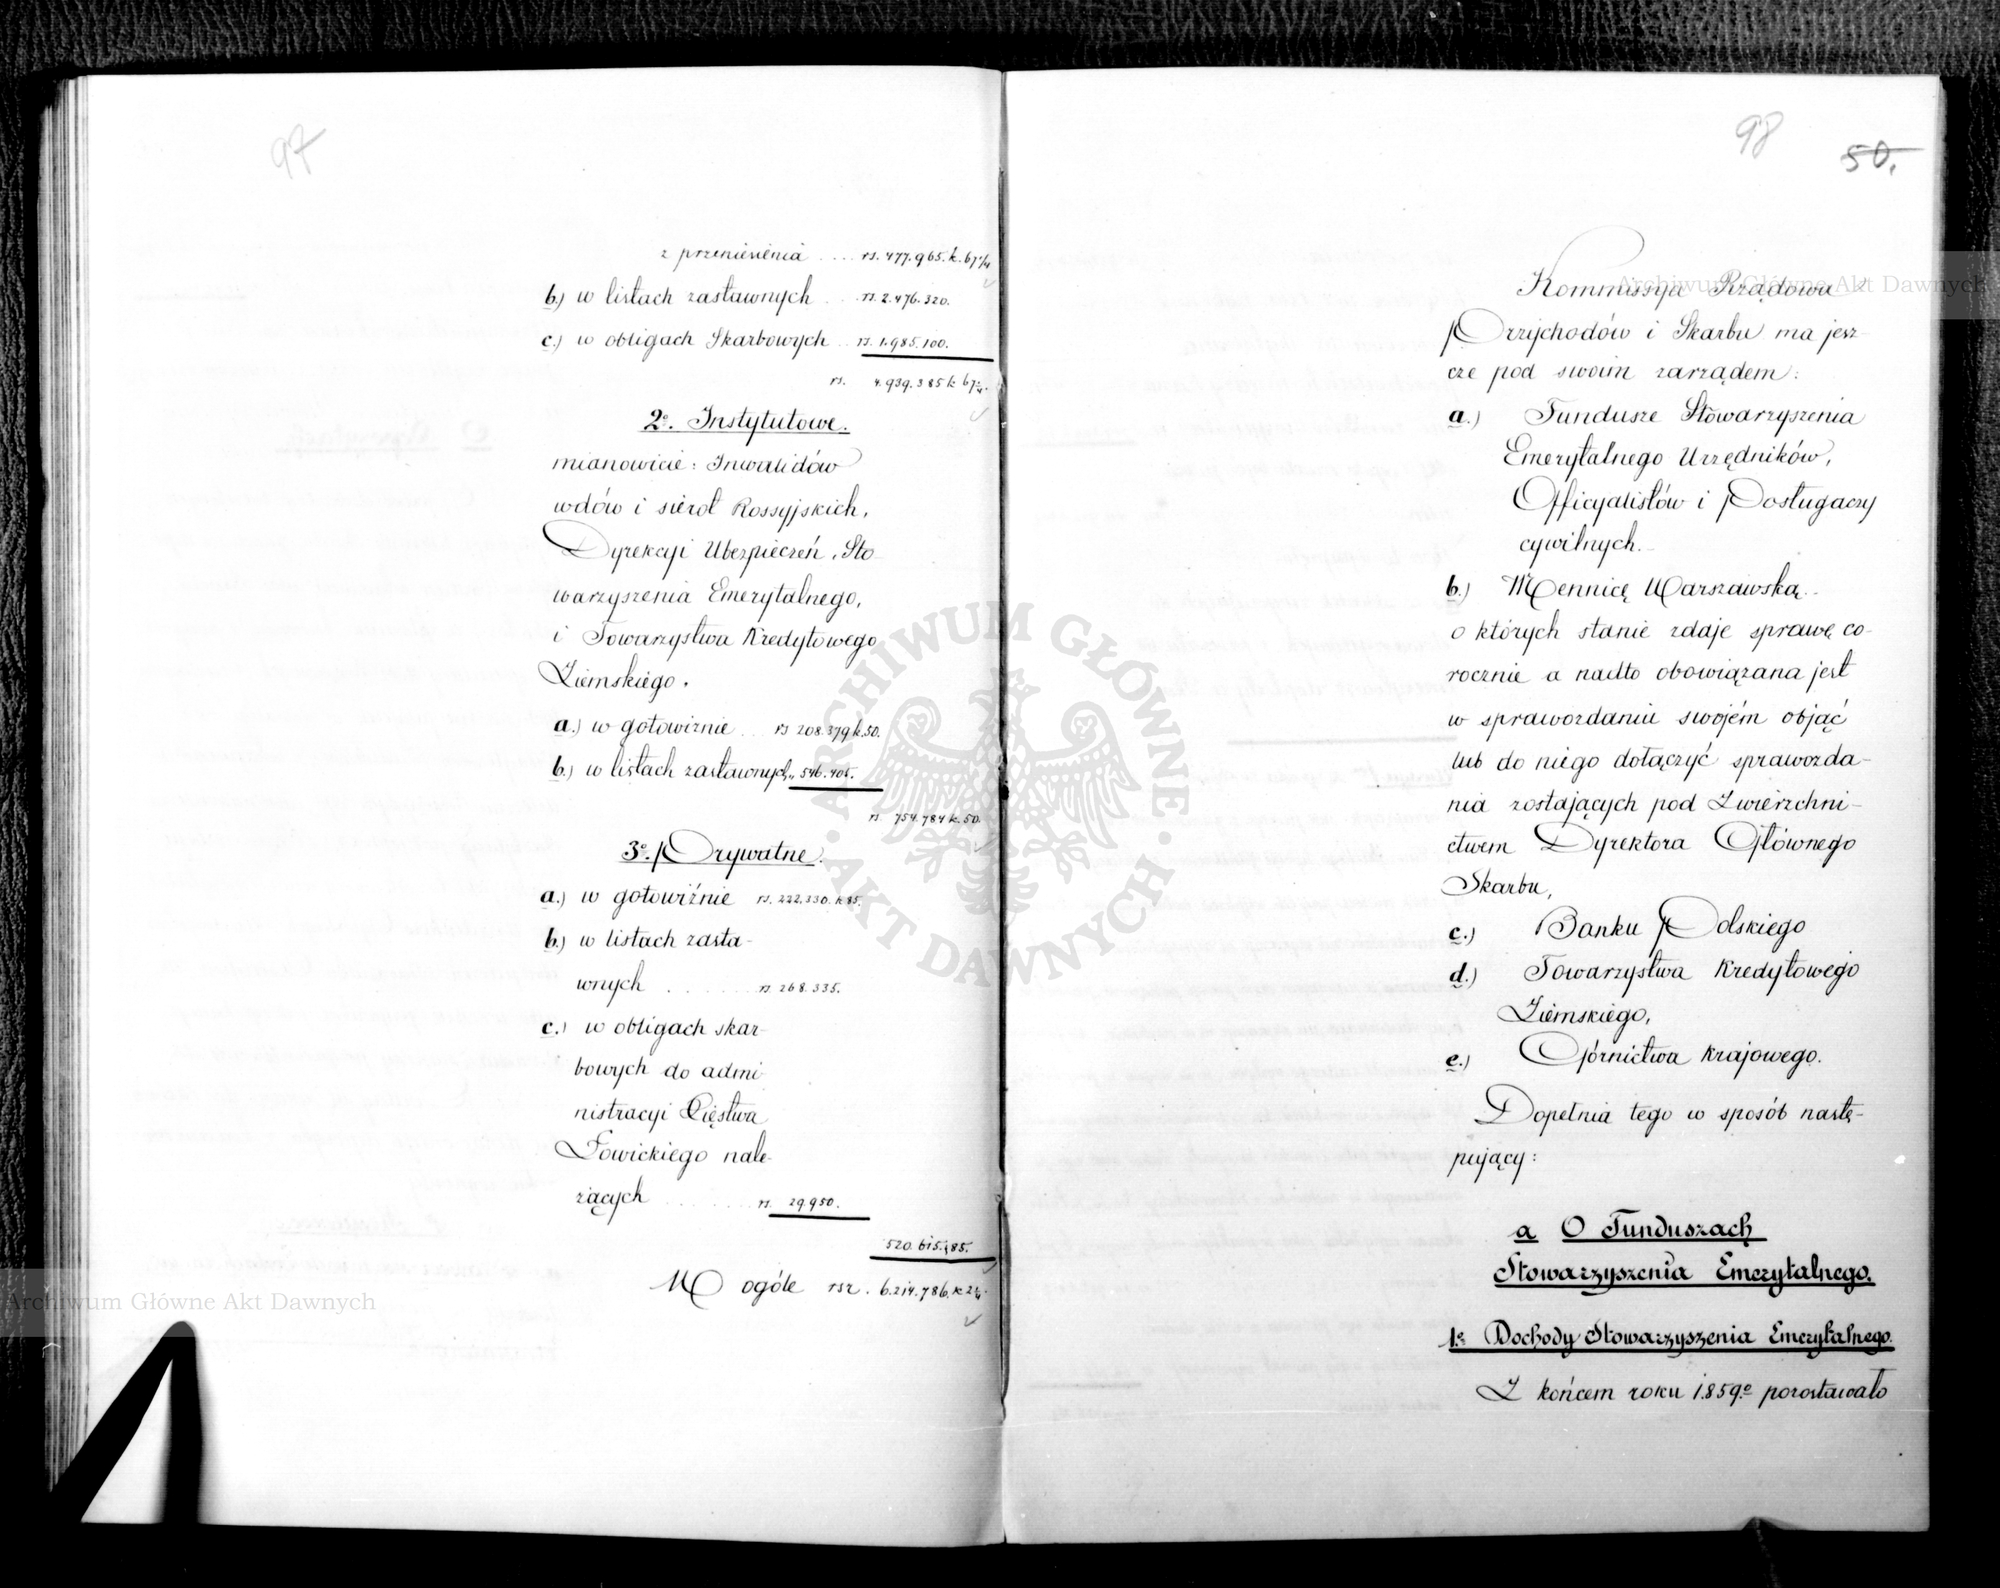 97
z przeniesienia .... rs. 477.965. k. 67 1/4
b.) w listach zastawnych ... rs. 2.476.320.
c.) w obligach Skarbowych .. rs. 1.985.100.
rs. 4.939.385 k 67 1/4.
2º. Instytutowe.
mianowicie: Inwalidów
wdów i sierot Rossyjskich,
Dyrekcyi Ubezpieczeń, Sto
warzyszenia Emerytalnego,
i Towarzystwa Kredytowego
Ziemskiego.
a.) w gotowiznie ... rs 208.379 k. 50.
b.) w listach zastawnych „ 546.405.
rs 754.784 k. 50.
3º. Prywatne.
a.) w gotowiźnie rs. 222.330. k 85.
b.) w listach zasta-
wnych ....... rs. 268.335.
c.) w obligach skar-
bowych do admi
nistracyi Xięstwa
Łowickiego nale-
żących ....... rs. 29.950.
520.615. 85.
W ogóle rsr. 6.214.786. k 2 1/4.
98
50.
Kommissya Rządowa
Przychodów i Skarbu ma jesz-
cze pod swoim zarządem:
a.) Fundusze Stowarzyszenia
Emerytalnego Urzędników,
Officyalistów i Posługaczy
cywilnych.
b.) Mennicę Warszawską.
o których stanie zdaje sprawę co-
rocznie a nadto obowiązana jest
w sprawozdaniu swojém objąć
lub do niego dołączyć sprawozda-
nia zostających pod Zwierzchni-
ctwem Dyrektora Głównego
Skarbu,
c.) Banku Polskiego
d.) Towarzystwa Kredytowego
Ziemskiego,
e.) Górnictwa Krajowego.
Dopełnia tego w sposób nastę-
pujący:
a O Funduszach
Stowarzyszenia Emerytalnego.
1º Dochody Stowarzyszenia Emerytalnego.
Z końcem roku 1859.º pozostawało
Archiwum Główne Akt Dawnych
Archiwum Główne Akt Dawnych
ARCHIWUM GŁÓWNE
· AKT DAWNYCH ·